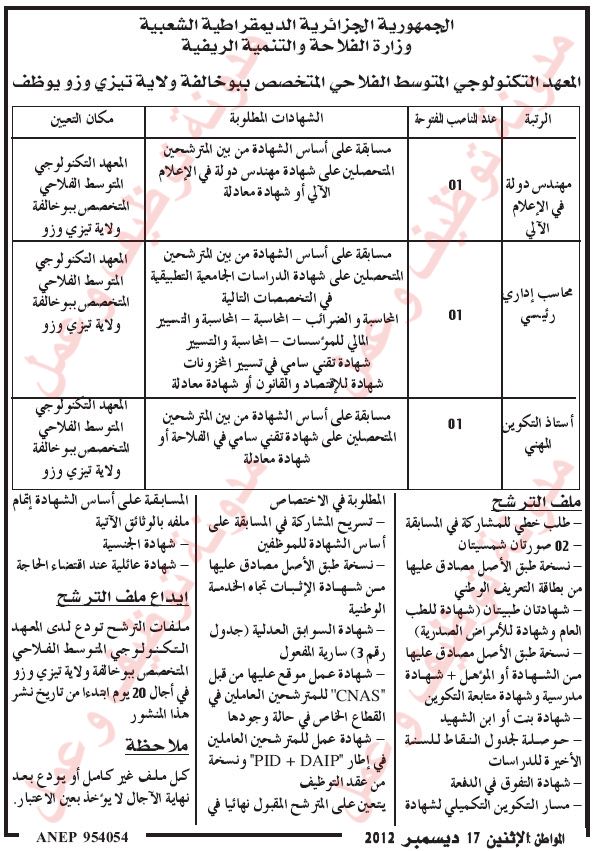 الجمهورية الجزائرية الديمقراطية الشعبية
وزارة الفلاحة والتنمية الريفية
المعهد التكنولوجي المتوسط الفلاحي المتخصص ببوخالفة ولاية تيزي وزو يوظف
الرتبة
عدد المناصب المفتوحة
الشهادات المطلوبة
مكان التعيين
مهندس دولة
في الإعلام
الآلي
01
مسابقة على أساس الشهادة من بين المترشحين
المتحصلين على شهادة مهندس دولة في الإعلام
الآلي أو شهادة معادلة
المعهد التكنولوجي
المتوسط الفلاحي
المتخصص ببوخالفة
ولاية تيزي وزو
محاسب إداري
رئيسي
01
مسابقة على أساس الشهادة من بين المترشحين
المتحصلين على شهادة الدراسات الجامعية التطبيقية
في التخصصات التالية
المحاسبة و الضرائب – المحاسبة – المحاسبة و التسيير
المالي للمؤسسات – المحاسبة والتسيير
شهادة تقني سامي في تسيير المخزونات
شهادة للإقتصاد و القانون أو شهادة معادلة
المعهد التكنولوجي
المتوسط الفلاحي
المتخصص ببوخالفة
ولاية تيزي وزو
أستاذ التكوين
المهني
01
مسابقة على أساس الشهادة من بين المترشحين
المتحصلين على شهادة تقني سامي في الفلاحة أو
شهادة معادلة
المعهد التكنولوجي
المتوسط الفلاحي
المتخصص ببوخالفة
ولاية تيزي وزو
ملف الترشح
– طلب خطي للمشاركة في المسابقة
– 02 صورتان شمسيتان
– نسخة طبق الأصل مصادق عليها
من بطاقة التعريف الوطني
– شهادتان طبيتان (شهادة للطب
العام وشهادة للأمراض الصدرية)
– نسخة طبق الأصل مصادق عليها
من الشهادة أو المؤهل + شهادة
مدرسية و شهادة متابعة التكوين
– شهادة بنت أو ابن الشهيد
– حوصلة لجدول النقاط للسنة
الأخيرة للدراسات
– شهادة التفوق في الدفعة
– مسار التكوين التكميلي لشهادة
المطلوبة في الاختصاص
– تسريح المشاركة في المسابقة على
أساس الشهادة للموظفين
– نسخة طبق الأصل مصادق عليها
من شهادة الإثبات تجاه الخدمة
الوطنية
– شهادة السوابق العدلية (جدول
رقم 3) سارية المفعول
– شهادة عمل موقع عليها من قبل
"CNAS" للمترشحين العاملين في
القطاع الخاص في حالة وجودها
– شهادة عمل للمترشحين العاملين
في إطار "PID + DAIP" ونسخة
من عقد التوظيف
يتعين على المترشح المقبول نهائيا في
المسابقة على أساس الشهادة إتمام
ملفه بالوثائق الآتية
– شهادة الجنسية
– شهادة عائلية عند اقتضاء الحاجة
إيداع ملف الترشح
ملفات الترشح تودع لدى المعهد
التكنولوجي المتوسط الفلاحي
المتخصص ببوخالفة ولاية تيزي وزو
في أجال 20 يوم ابتداءا من تاريخ نشر
هذا المنشور
ملاحظة
كل ملف غير كامل أو يودع بعد
نهاية الآجال لا يؤخذ بعين الاعتبار.
المواطن الإثنين 17 ديسمبر 2012
ANEP 954054
مدونة توظيف و عمل
مدونة توظيف و عمل
مدونة توظيف و عمل
مدونة توظيف و عمل